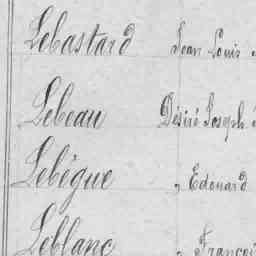 Lebastard Jean Louis
Lebeau Désiré Joseph
Lebégue „ Edouard
Leblanc „ Françoi